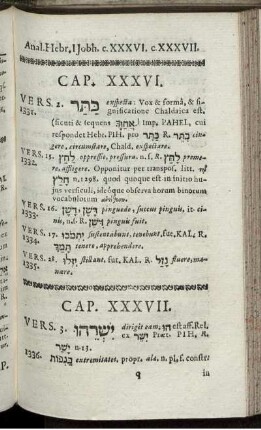 Anal. Hebr. IJobh. c. XXXVI. c. XXXVII.
CAP. XXXVI.
VERS. 2. כַּתַּר expecta: Vox & formâ, & si-
1331. gnificatione Chaldaica est,
(sicuti & sequens אֲחַוְּךָ) Imp. PAHEL, cui
respondet Hebr. PIH. pro כַּתֵּר R. כָּתַר cin-
gere, circumstare, Chald. exspectare.
VERS. 15. לַחַץ oppressio, pressura. n. s. R. לָחַץ preme-
1332. re, affligere. Opponitur per transpos. litt. τῷ
חָלַץ n. 1298. quod quinque est in initio hu-
jus versiculi, ideóque observa horum binorum
vocabulorum
VERS. 16. דֶּשֶׁן pinguedo, succus pinguis, it. ci-
1333. nis, n. R. דָּשֵׁן pinguis fuit.
VERS. 17. יִתְמֹכוּ sustentabunt, tenebunt, fut. KAL, R.
1334. תָּמַךְ tenere, apprehendere.
VERS. 28. יִזְּלוּ stillant, fut. KAL. R. נָזַל fluere, ma-
1335. nare.
CAP. XXXVII.
VERS. 3. יִשְׁרֵהוּ dirigit eam, הוּ est aff. Rel.
ex יָשַׁר Præt. PIH, R.
יָשַׁר n. 13.
1336. כַּנְפוֹת extremitates, propr. alæ. n. pl. f. constr.
q in